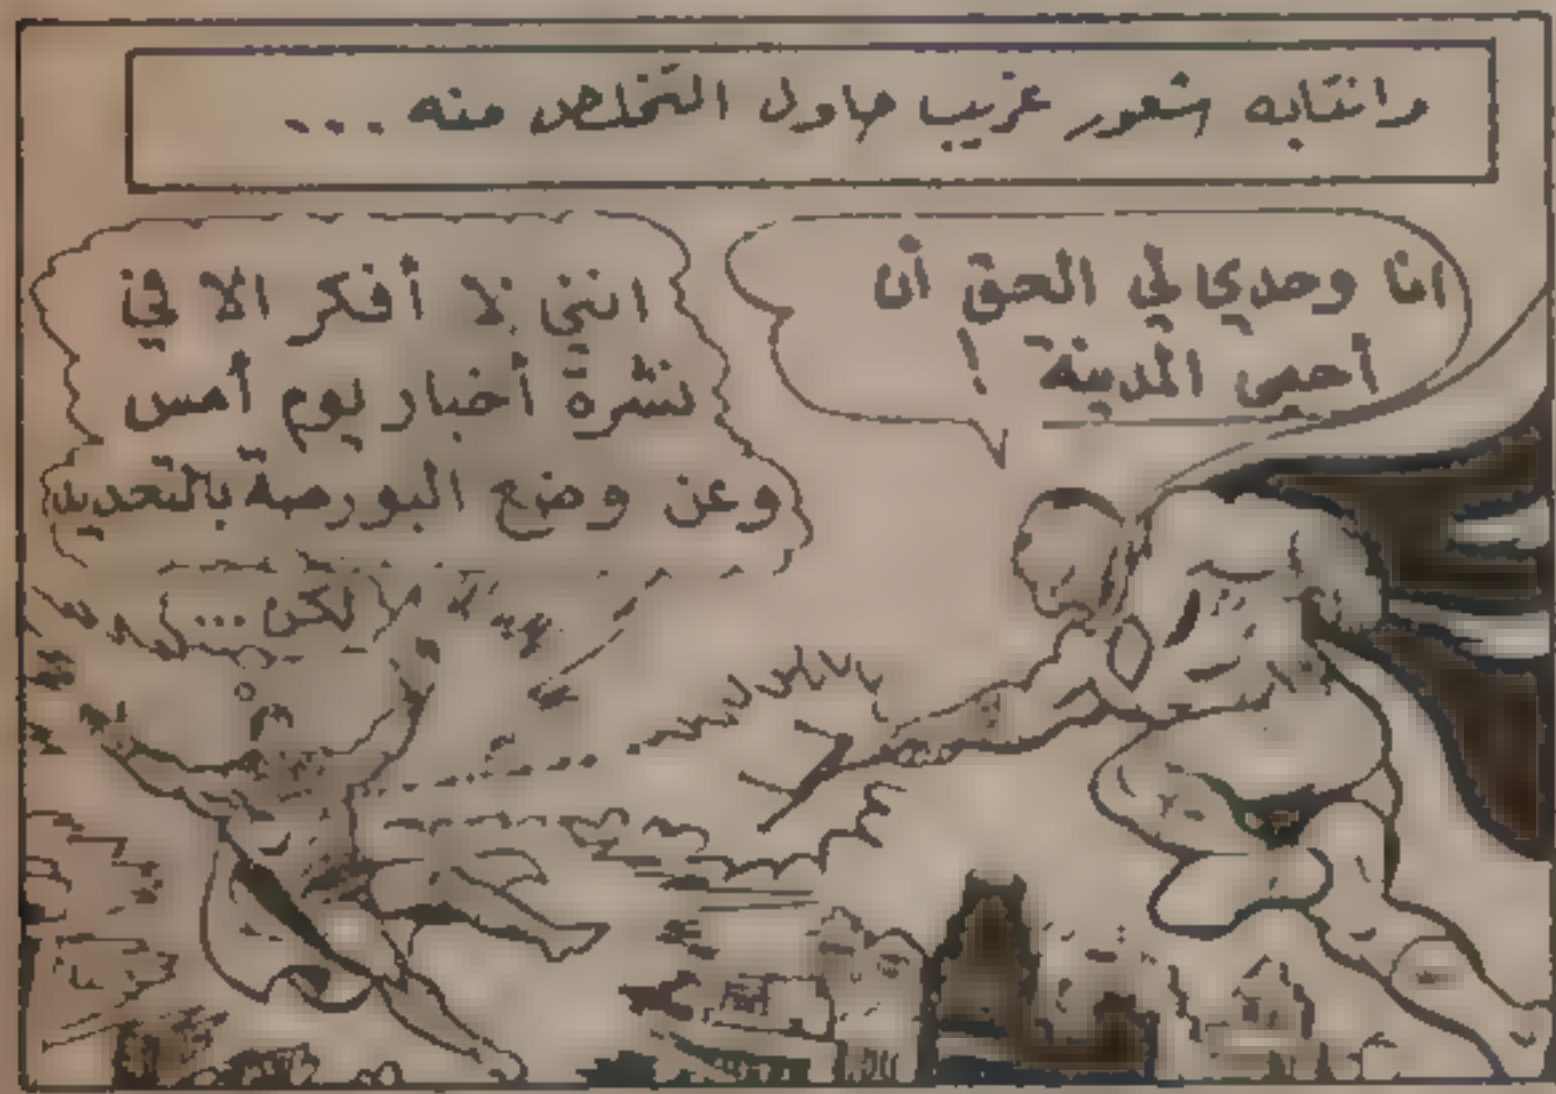 وانتابه شعور غريب حاول التخلص منه ...
انا وحدي لي الحق أن
أحمي المدينة !
انني لا أفكر الا في
نشرة أخبار يوم أمس
وعن وضع البورصة بالتحديد
لكن ...